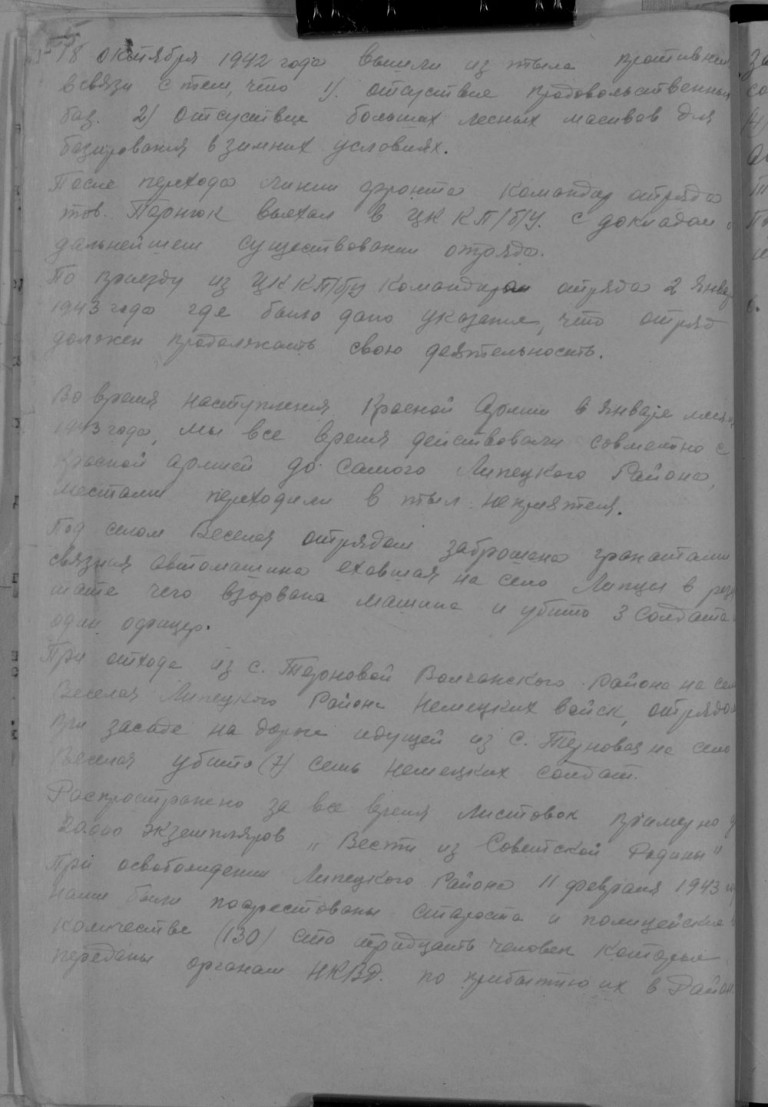 18 октября 1942 года вышли из тыла противника
в связи с тем, что 1). отсутствие продовольственных
баз. 2) Отсутствие больших лесных масивов для
базирования в зимних условиях.
После перехода линии фронта командир отряда
тов. выехал в ЦК КП/б/У. с докладом о
дальнейшем существовании отряда.
По приезду из ЦК КП/б/У командира отряда 2 января
1943 года где было дано указание, что отряд
должен продолжать свою деятельность.
Во время наступления Красной Армии в январе месяце
1943 года, мы все время действовали совместно с
Красной армией до самого Липецкого Района,
местами переходили в тыл неприятеля.
Под селом Веселая отрядом заброшена гранатами
связная автомашина ехавшая на село Липцы в резуль
тате чего взорвана машина и убито 3 солдата
один офицер.
При отходе из с. Терновой Волчанского района на село
Веселая Липецкого Района Немецких войск, отрядом
при засаде на дороге идущей из с. Терновая на село
Веселая убито (7) семь немецких солдат.
Распространено за все время листовок примерно
20.000 экземпляров „Вести из Советской Родины"
При освобождении Липецкого Района 11 февраля 1943
нами были поарестованы старосты и полицейские в
количестве (130) сто тридцать человек которые
переданы органам НКВД. по прибытию их в Район